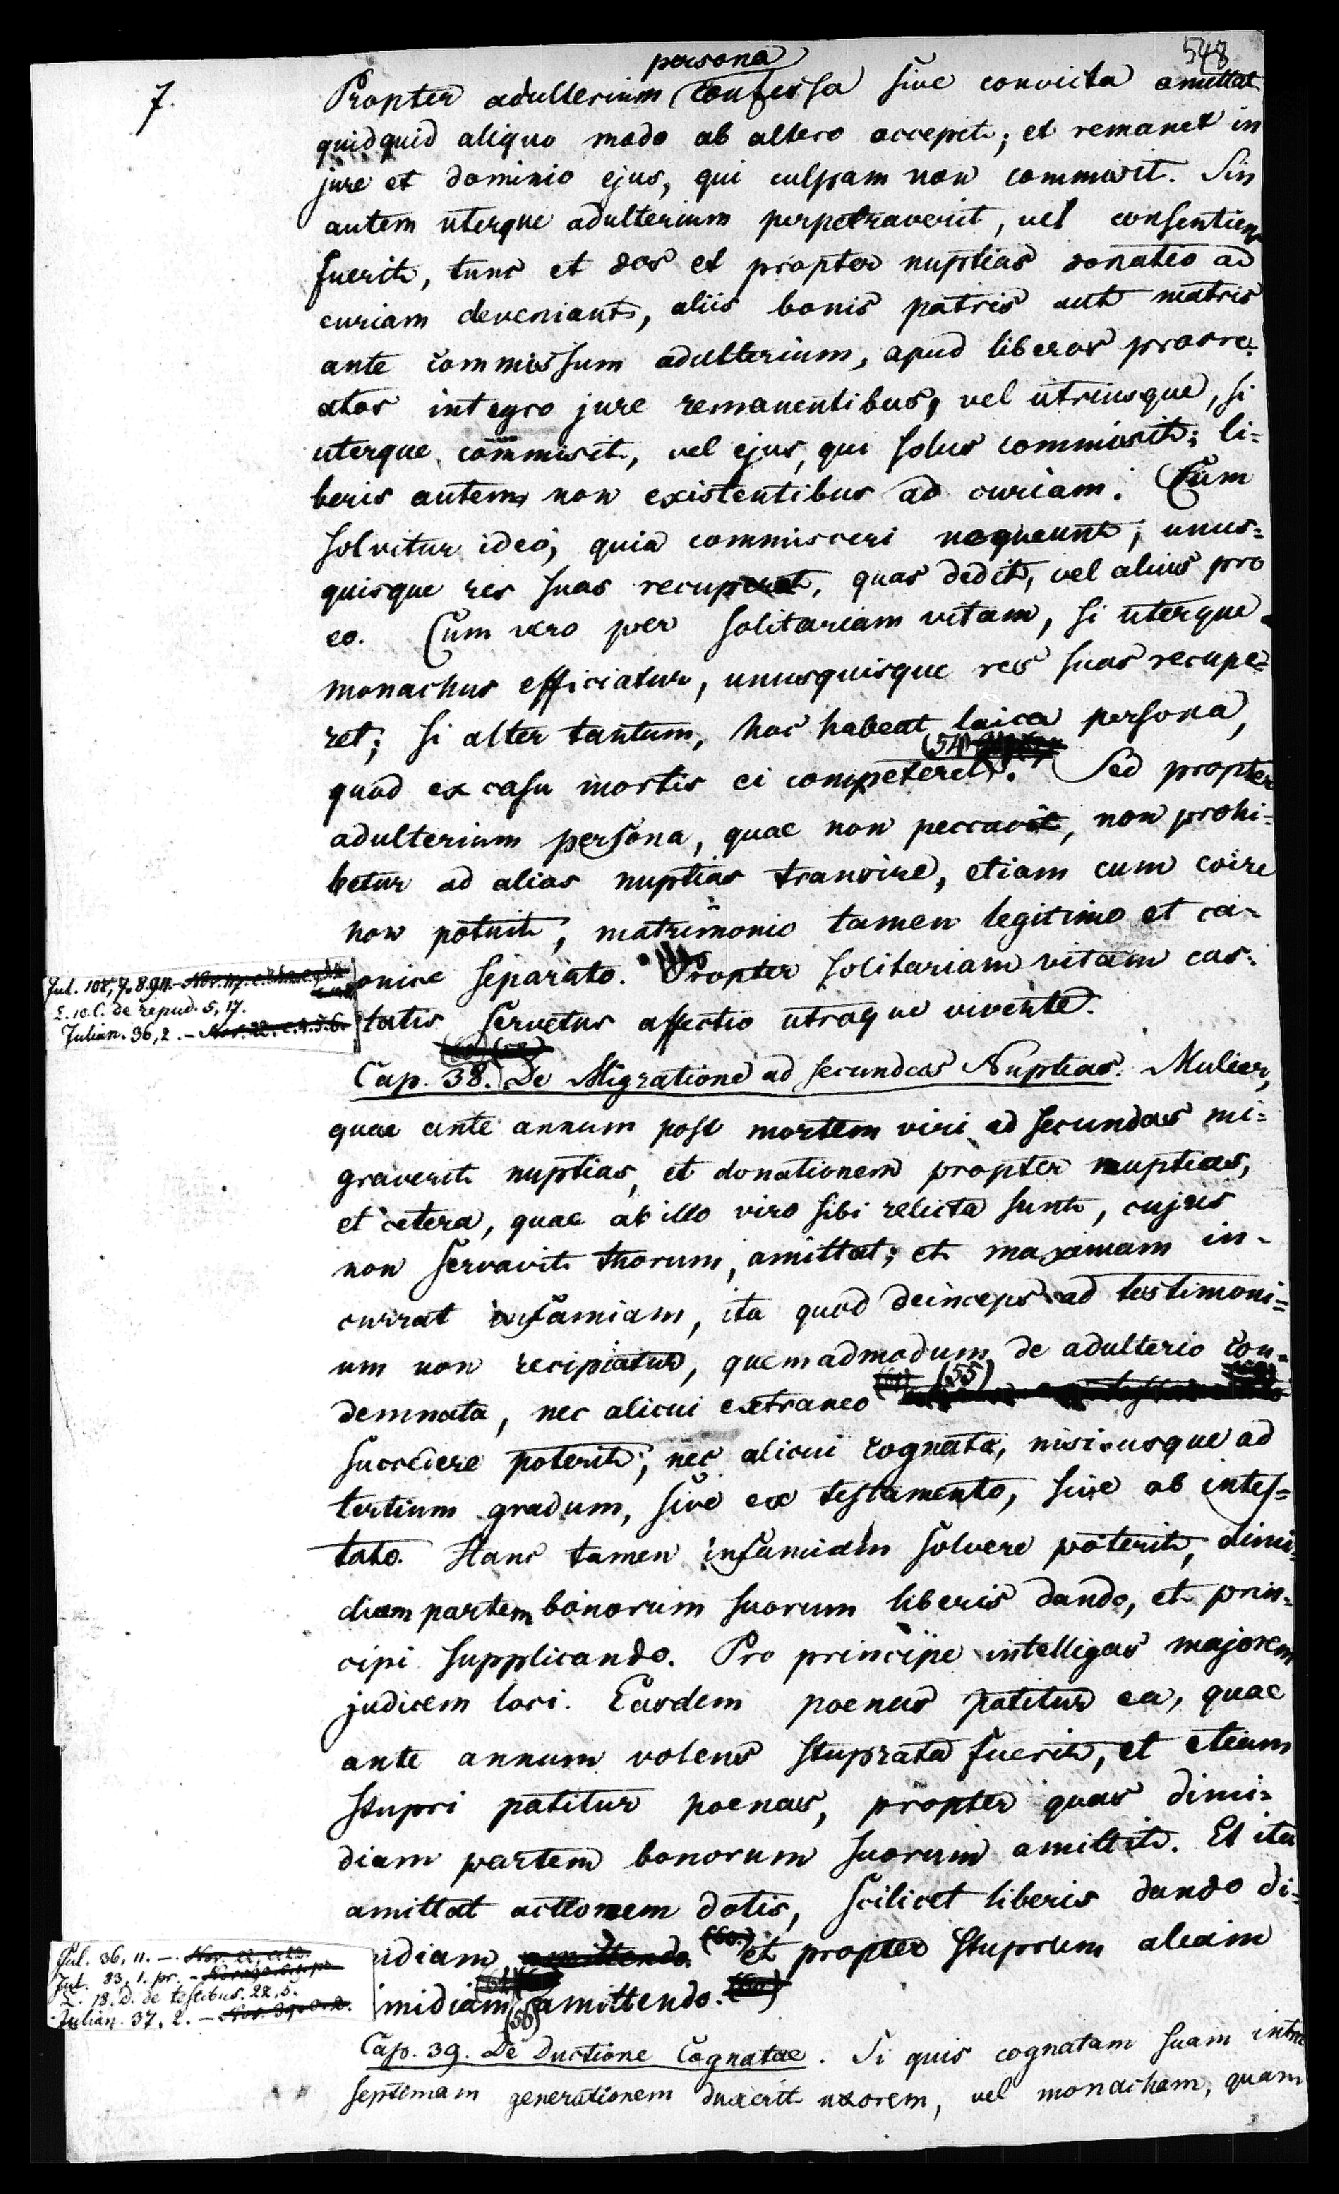 548
7.
persona
Propter adulterium confessa sive convicta amittat
quidquid aliquo modo ab altero accepit; et remanet in
jure et dominio ejus, qui culpam non commisit. Sin
autem uterque adulterium perpetraverit, vel consentiens
fuerit, tunc et dos et propter nuptias donatio ad
curiam deveniant, aliis bonis patris aut matris
ante commissum adulterium, apud liberos procre=
atos integro jure remanentibus, vel utriusque, si
uterque commisit, vel ejus, qui solus commisit; li=
beris autem non existentibus ad curiam. Cum
solvitur ideo, quia commisceri nequeunt; unus=
quisque res suas recuperet, quas dedit, vel alius pro
eo. Cum vero per solitariam vitam, si uterque
monachus efficiatur, unusquisque res suas recupe=
ret; si alter tantum, hoc habeat laica persona,
quod ex casu mortis ei competeret. (54) Sed propter
adulterium persona, quae non peccavit, non prohi=
betur ad alias nuptias transire, etiam cum coire
non potuit, matrimonio tamen legitimo et ca=
onice separato. Propter solitariam vitam cas=
tatis servetur affectio utroque vivente.
Jul. 108, 7. 8. 9.
L. 10. C. de repud. 5, 17.
Julian. 36, 2. – Nov. 22. c. 5. 6.
Cap. 38. De Migratione ad secundas Nuptias. Mulier,
quae ante annum post mortem viri ad secundas mi=
graverit nuptias, et donationem propter nuptias,
et cetera, quae ab illo viro sibi relicta sunt, cujus
non servavit thorum, amittat; et maximam in=
currat infamiam, ita quod deinceps ad testimoni=
um non recipiatur, quemadmodum de adulterio con=
demnata, nec alicui extraneo (55)
succedere poterit, nec alicui cognata, nisi usque ad
tertium gradum, sive ex testamento, sive ab intes=
tato. Hanc tamen infamiam solvere poterit, dimi=
diam partem bonorum suorum liberis dando, et prin=
cipi supplicando. Pro principe intelligas majorem
judicem loci. Easdem poenas patitur ea, quae
ante annum volens stuprata fuerit, et etiam
stupri patitur poenas, propter quas dimi=
diam partem bonorum suorum amittit. Et ita
amittat actionem dotis, scilicet liberis dando di=
idiam amittendo et propter stuprum aliam
imidiam amittendo. (56)
Jul. 36, 11. – Nov. 22. c. 22.
Jul. 83, 1. pr.
L. 18. D. de testibus. 22, 5.
Julian. 37, 2. – Nov. 39. c. 2.
Cap. 39. De Ductione Cognatae. Si quis cognatam suam intra
septimam generationem duxerit uxorem, vel monacham, quam